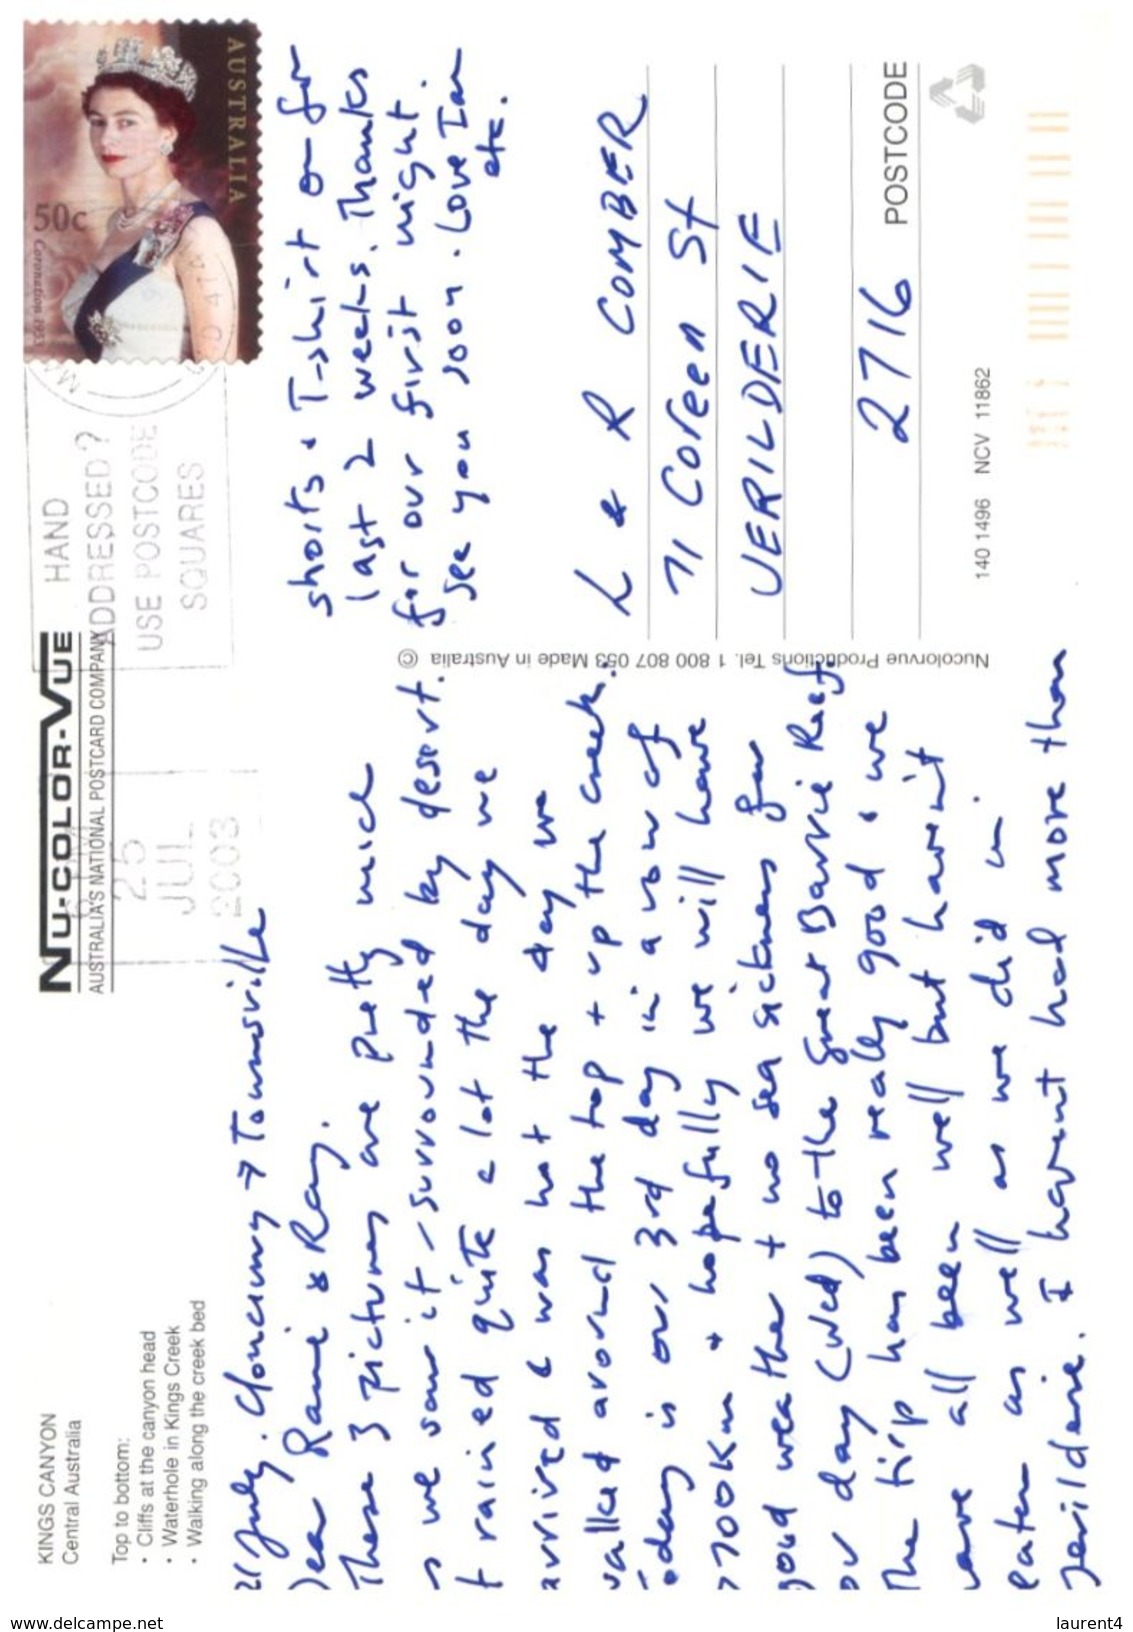 KINGS CANYON
Central Australia
Top to bottom:
• Cliffs at the canyon head
• Waterhole in Kings Creek
• Walking along the creek bed
NU-COLOR-VUE
AUSTRALIA'S NATIONAL POSTCARD COMPANY
25
JUL
2003
HAND
ADDRESSED?
USE POSTCODE
SQUARES
AUSTRALIA
50c
Coronation 1953
21 July. Cloncurry → Townsville
Dear & Ray.
These 3 pictures are pretty nice
we saw it - surrounded by desert.
+ rained quite a lot the day we
arrived & was hot the day we
walked around the top + up the creek.
today is our 3rd day in a row of
>700km + hopefully we will have
good weather + no sea sickness for
our day (Wed) to the Great Barrie Reef
The trip has been really good & we
have all been well but havn't
eaten as well as we did in
Jerilderie. I havent had more than
shorts & T-shirt on for
last 2 weeks. Thanks
for our first night.
See you soon. Love Ian
etc.
Nucolorvue Productions Tel. 1 800 807 053 Made in Australia ©
L & R COMBER
71 Coreen St
JERILDERIE
2716 POSTCODE
140 1496 NCV 11862
www.delcampe.net
laurent4